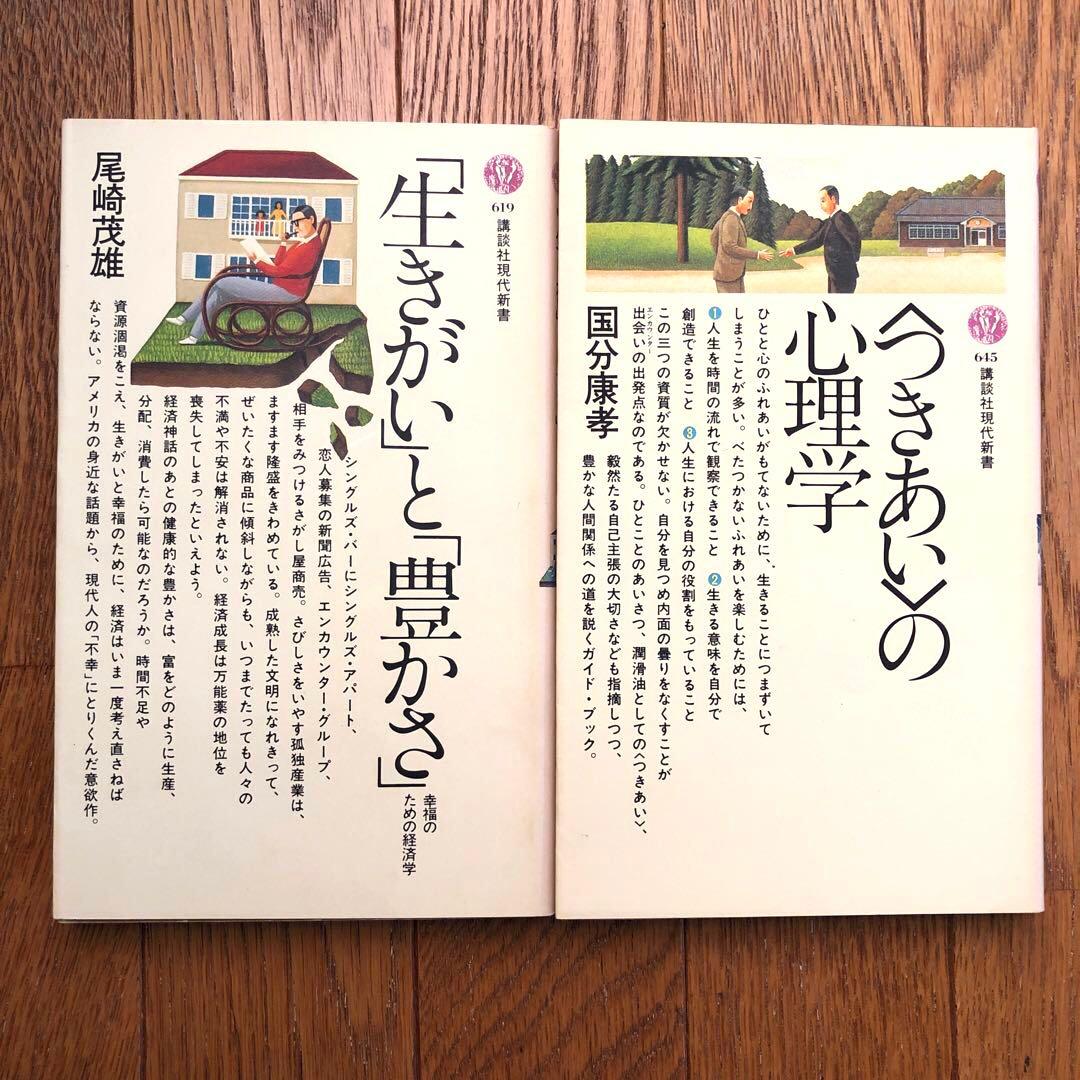 619
講談社現代新書
「生きがい」と「豊かさ」
幸福の
ための経済学
尾崎茂雄
シングルズ・バーにシングルズ・アパート、
恋人募集の新聞広告、エンカウンター・グループ、
相手をみつけるさがし屋商売。さびしさをいやす孤独産業は、
ますます隆盛をきわめている。成熟した文明になれきって、
ぜいたくな商品に傾斜しながらも、いつまでたっても人々の
不満や不安は解消されない。経済成長は万能薬の地位を
喪失してしまったといえよう。
経済神話のあとの健康的な豊かさは、富をどのように生産、
分配、消費したら可能なのだろうか。時間不足や
資源涸渇をこえ、生きがいと幸福のために、経済はいま一度考え直さねば
ならない。アメリカの身近な話題から、現代人の「不幸」にとりくんだ意欲作。
645
講談社現代新書
〈つきあい〉の
心理学
国分康孝
ひとと心のふれあいがもてないために、生きることにつまずいて
しまうことが多い。べたつかないふれあいを楽しむためには、
1人生を時間の流れで観察できること 2生きる意味を自分で
創造できること 3人生における自分の役割をもっていること
この三つの資質が欠かせない。自分を見つめ内面の曇りをなくすことが
エンカウンター
出会いの出発点なのである。ひとことのあいさつ、潤滑油としての〈つきあい〉、
毅然たる自己主張の大切さなども指摘しつつ、
豊かな人間関係への道を説くガイド・ブック。